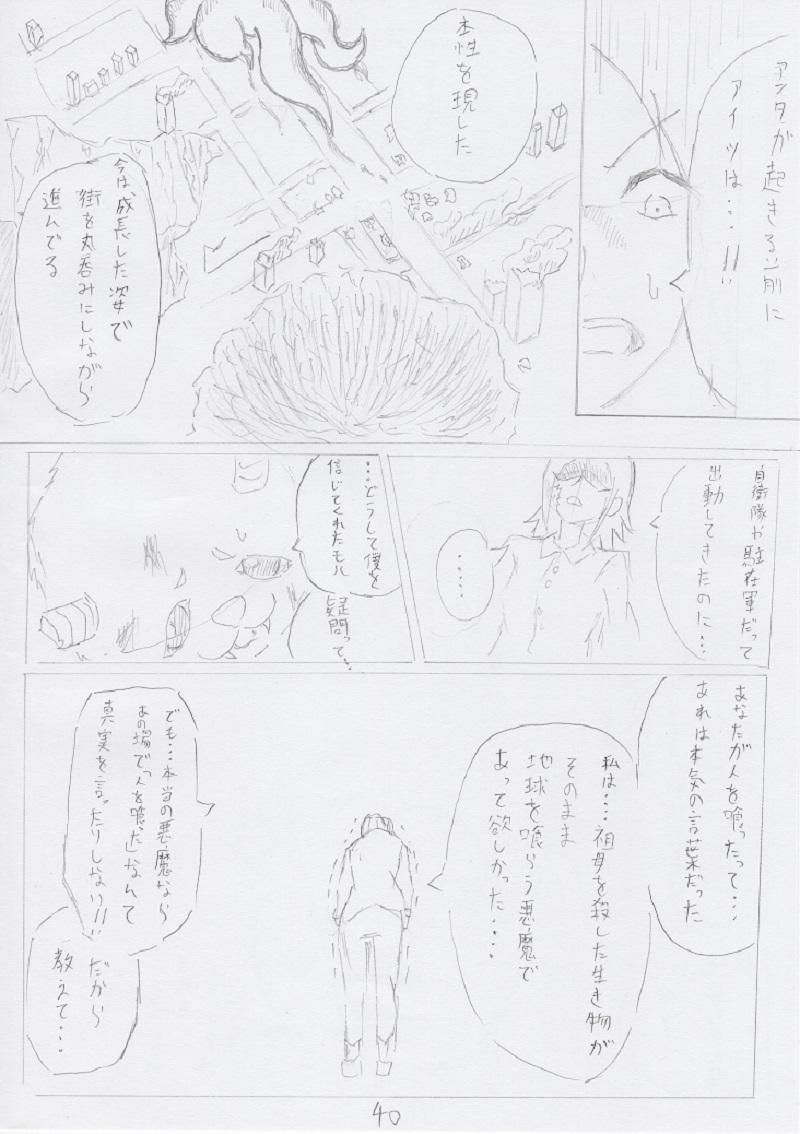 アンタが起きる前に
アイツは・・・!!
本性を現した
今は成長した姿で
街を丸呑みにしながら
進んでる
自衛隊や駐在軍だって
出動してきたのに・・・
・・・・・
・・・どうして僕を
信じてくれたモルか
疑問って・・・
あなたが人を喰ったって・・・
あれは本気の言葉だった
私は・・・祖母を殺した生き物が
そのまま
地球を喰らう悪魔で
あって欲しかった・・・・
でも・・・本当の悪魔なら
あの場で「人を喰った」なんて
真実を言ったりしない!!
だから
教えて・・・
40